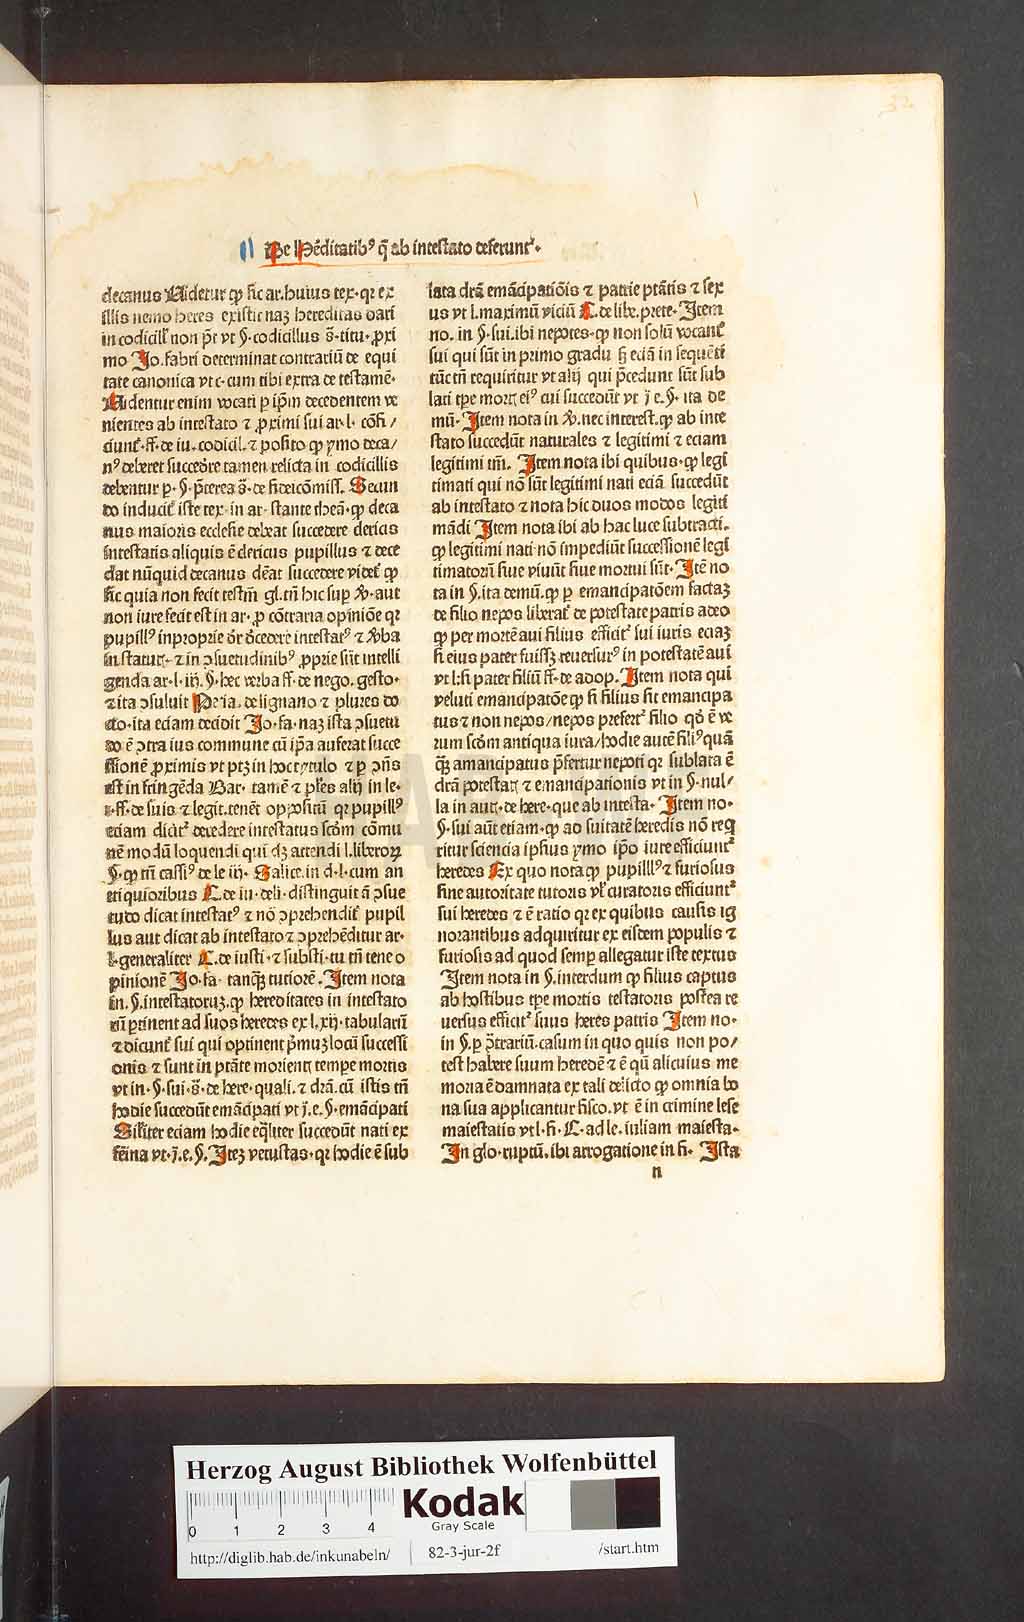 32
De Hẽditatibꝰ q̃ ab intestato deferunt᷑.
decanus Uidetur ꝙ sic ar. huius tex. qꝛ ex
illis nemo heres existit naꝫ hereditas dari
in codicill̕ non põt vt §. codicillus s̃. titu. ꝓxi
mo Jo. fabri determinat contrariũ de equi
tate canonica vt c. cum tibi extra de testamẽ.
Uidentur enim vocati ꝑ ip̃m decedentem ve
nientes ab intestato ⁊ ꝓximi sui ar. l. cõfi/
ciunt᷑. ff. de iu. codicil. ⁊ posito ꝙ ymo deca/
nꝰ deberet succedere tamen relicta in codicillis
debentur ꝑ. §. p̃terea s̃. de fideicõmiss. Secun
do inducit᷑ iste tex. in ar. stante theã. ꝙ deca
nus maioris ecclesie debeat succedere clericis
intestatis aliquis ẽ clericus pupillus ⁊ dece
dat nũquid decanus deãt succedere videt᷑ ꝙ
sic quia non fecit testm̃ gl. tñ hic suꝑ ꝟ. aut
non iure fecit est in ar. ꝓ cõtraria opiniõe qꝛ
pupillꝰ inproprie dr̃ decedere intestatꝰ ⁊ ꝟba
in statut. ⁊ in ɔsuetudinibꝰ ꝓprie sũt intelli
genda ar. l. iij. §. hec verba ff. de nego. gesto.
⁊ ita ɔsuluit Petrꝰ. de lignano ⁊ plures do
cto. ita eciam decidit Jo. fa. naꝫ ista ɔsuetu
do ẽ ɔtra ius commune cũ ip̃a auferat succe
ssionẽ ꝓximis vt ptꝫ in hoc tytulo ⁊ ꝑ ɔñs
est infringẽda Bar. tamẽ ⁊ pl̃es alij in le.
i. ff. de suis ⁊ legit. tenẽt oppositũ qꝛ pupillꝰ
eciam dicit᷑ decedere intestatus scdm̃ cõmu
nẽ modũ loquendi qui dꝫ attendi l. liberoꝝ
§. ꝙ tñ cassiꝰ de le iij. Salice. in d. l. cum an
tiquioribus C. de iu. deli. distinguit ã ɔsue
tudo dicat intestatꝰ ⁊ nõ ɔprehendit᷑ pupil
lus aut dicat ab intestato ⁊ ɔprehẽditur ar.
l. generaliter C. de iusti. ⁊ substi. tu tñ tene o
pinionẽ Jo. fa. tanqꝫ tutiorẽ. Jtem nota
in. §. intestatoruꝫ. ꝙ hereditates in intestato
rũ ꝑtinent ad suos heredes ex l. xij. tabularũ
⁊ dicunt᷑ sui qui optinent p̃muꝫ locũ successi
onis ⁊ sunt in ptãte morient. tempe mortis
vt in. §. sui. s̃. de here. quali. ⁊ drã. cũ istis tñ
hodie succedũt emãcipati vt j̃. e. §. emãcipati
Sil̃iter eciam hodie eql̃iter succedũt nati ex
feĩna vt. j̃. e. §. Jteꝫ vetustas. qꝛ hodie ẽ sub
lata drã emãcipatiõis ⁊ patrie ptãtis ⁊ sex
us vt l. maximũ viciũ C. de libe. prete. Jtem
no. in §. sui. ibi nepotes. ꝙ non solũ vocant᷑
sui qui sũt in primo gradu sꝫ eciã in sequẽti
tũc tñ requiritur vt alij qui p̃cedunt sũt sub
lati tꝑe mort eiꝰ cui succedũt vt j̃ e. §. ita de
mũ. Jtem nota in ꝟ. nec interest. ꝙ ab inte
stato succedũt naturales ⁊ legitimi ⁊ eciam
legitimi tm̃. Jtem nota ibi quibus. ꝙ legi
timati qui nõ sũt legitimi nati eciã succedũt
ab intestato ⁊ nota hic duos modos legiti
mãdi Jtem nota ibi ab hac luce subtracti.
ꝙ legitimi nati nõ impediũt successionẽ legi
timatorũ siue viuũt siue mortui sũt. Jtẽ no
ta in §. ita demũ. ꝙ ꝑ emancipatõem factaꝫ
de filio nepos liberat᷑ de potestate patris adeo
ꝙ per mortẽ aui filius efficit᷑ sui iuris eciaꝫ
si eius pater fuissꝫ reuersurꝰ in potestatẽ aui
vt l. si pater filiũ ff. de adop. Jtem nota qui
veluti emancipatõe ꝙ si filius sit emancipa
tus ⁊ non nepos/nepos prefert᷑ filio qđ ẽ ve
rum scdm antiqua iura/hodie autẽ filiꝰ quã
qꝫ amancipatus p̃fertur nepoti qꝛ sublata ẽ
drã potestat ⁊ emancipationis vt in §. nul/
la in aut. de here. que ab intesta. Jtem no.
§. sui aũt etiam. ꝙ ad suitatẽ heredis nõ req
ritur sciencia ipsius ymo ip̃o iure efficiunt᷑
heredes Ex quo nota ꝙ pupillꝰ ⁊ furiosus
sine autoritate tutoris vl̕ curatoris efficiunt᷑
sui heredes ⁊ ẽ ratio qꝛ ex quibus causis ig
norantibus adquiritur ex eisdem populis ⁊
furiosis ad quod semꝑ allegatur iste textus
Jtem nota in §. interdum ꝙ filius captus
ab hostibus tꝑe mortis testatoris postea re
uersus efficit᷑ suus heres patris Jtem no.
in §. ꝑ ɔ̃trariũ. casum in quo quis non po/
test habere suum heredẽ ⁊ ẽ qũ alicuius me
moria ẽ damnata ex tali delicto ꝙ omnia bo
na sua applicantur fisco. vt ẽ in crimine lese
maiestatis vt l. fi. C. ad le. iuliam maiesta.
Jn glo. ruptũ. ibi arrogatione in fi. Jsta
n
Herzog August Bibliothek Wolfenbüttel
0 1 2 3 4
Kodak
Gray Scale
http://diglib.hab.de/inkunabeln/ 82-3-jur-2f /start.htm
HAB